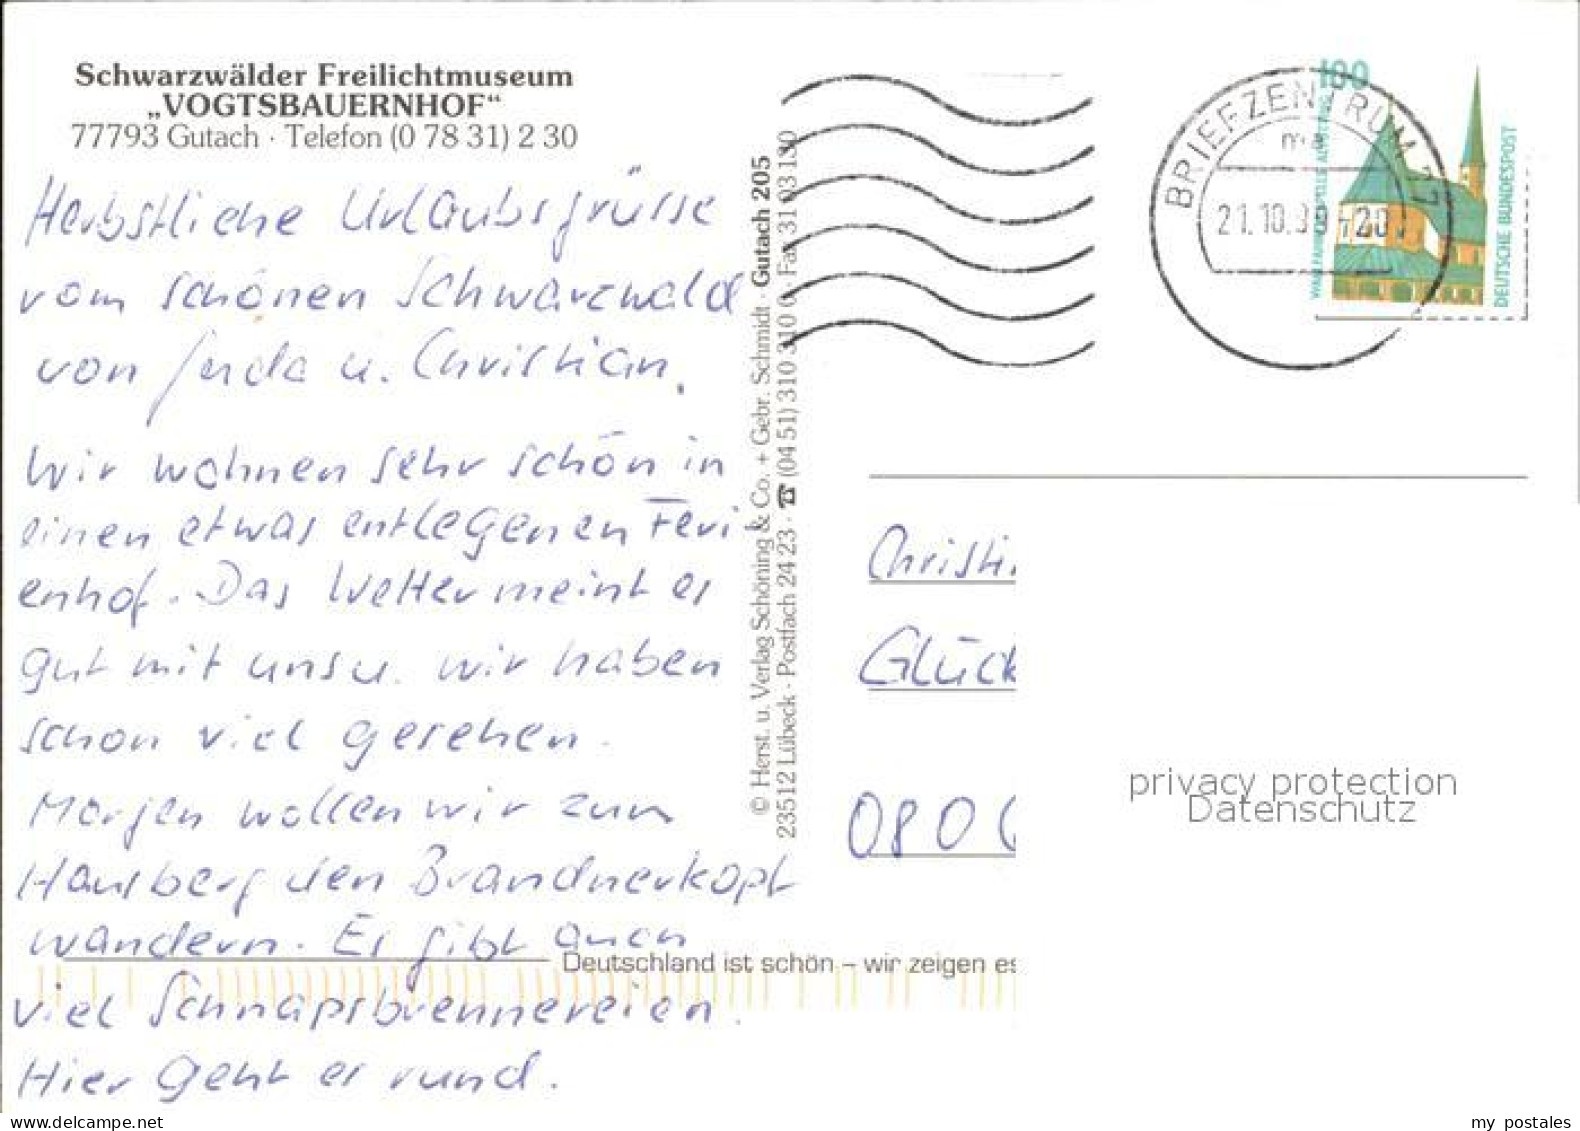 Schwarzwälder Freilichtmuseum
„VOGTSBAUERNHOF“
77793 Gutach · Telefon (0 78 31) 2 30
Herbstliche Urlaubsgrüsse
vom schönen Schwarzwald
von Gerda u. Christian.
Wir wohnen sehr schön in
einen etwas entlegenen Feri
enhof. Das Wetter meint es
gut mit uns u. wir haben
schon viel gesehen.
Morgen wollen wir zum
Hausberg den Brandnerkopf
wandern. Es gibt auch
viel Schnapsbrennereien.
Hier geht es rund.
Deutschland ist schön – wir zeigen es
© Herst. u. Verlag Schöning & Co. + Gebr. Schmidt · Gutach 205
23512 Lübeck · Postfach 24 23 · ☎ (04 51) 310 310 0 · Fax 31 03 130
BRIEFZENTRUM 77
21.10. -20
100
DEUTSCHE BUNDESPOST
Christi
Glück
080
privacy protection
Datenschutz
my postales